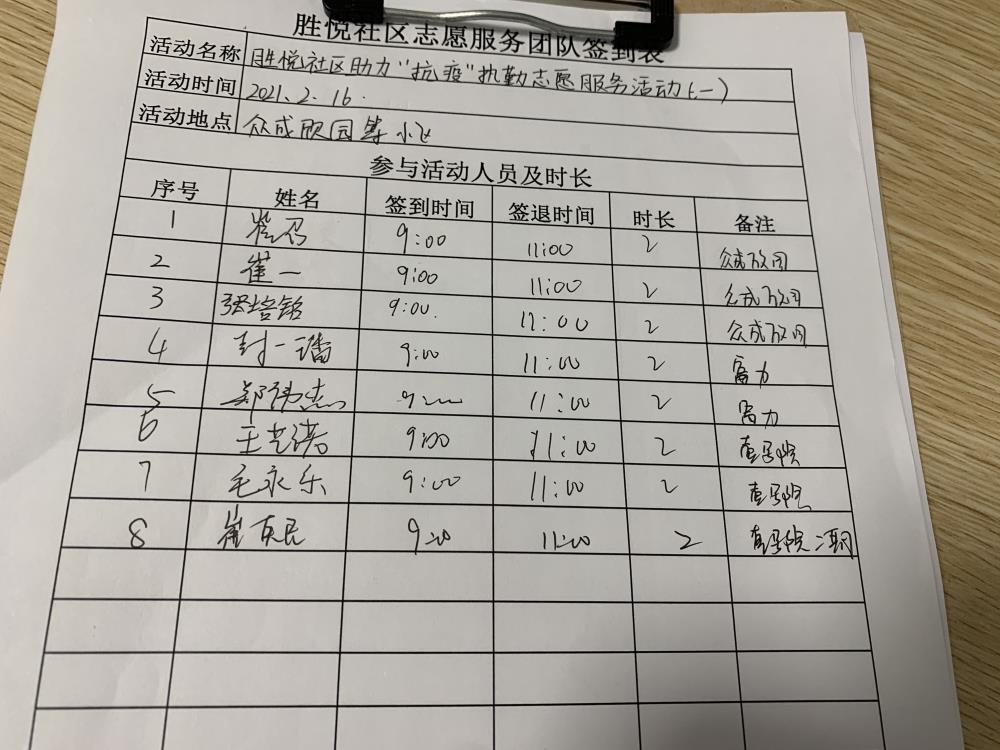 胜悦社区志愿服务团队签到表
活动名称 胜悦社区助力“抗疫”执勤志愿服务活动(一)
活动时间 2021.2.16.
活动地点 众成欣园等小区
参与活动人员及时长
序号 姓名 签到时间 签退时间 时长 备注
1 崔 9:00 11:00 2 众成欣园
2 崔一 9:00 11:00 2 众成欣园
3 张培铭 9:00. 11:00 2 众成欣园
4 封一璠 9:00 11:00 2 富力
5 郑伟杰 9:00 11:00 2 富力
6 王艺诺 9:00 11:00 2
7 毛永乐 9:00 11:00 2
8 崔百民 9:00 11:00 2